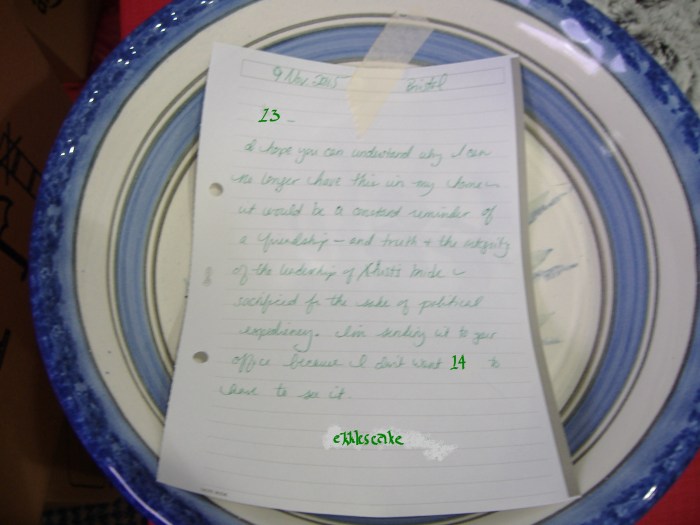 9 Nov 2015 Bristol
13 -
I hope you can understand why I can
no longer have this in my home -
it would be a constant reminder of
a friendship - and truth + the integrity
of the leadership of Christ's bride -
sacrificed for the sake of political
expediency. I'm sending it to your
office because I don't want 14 to
have to see it.